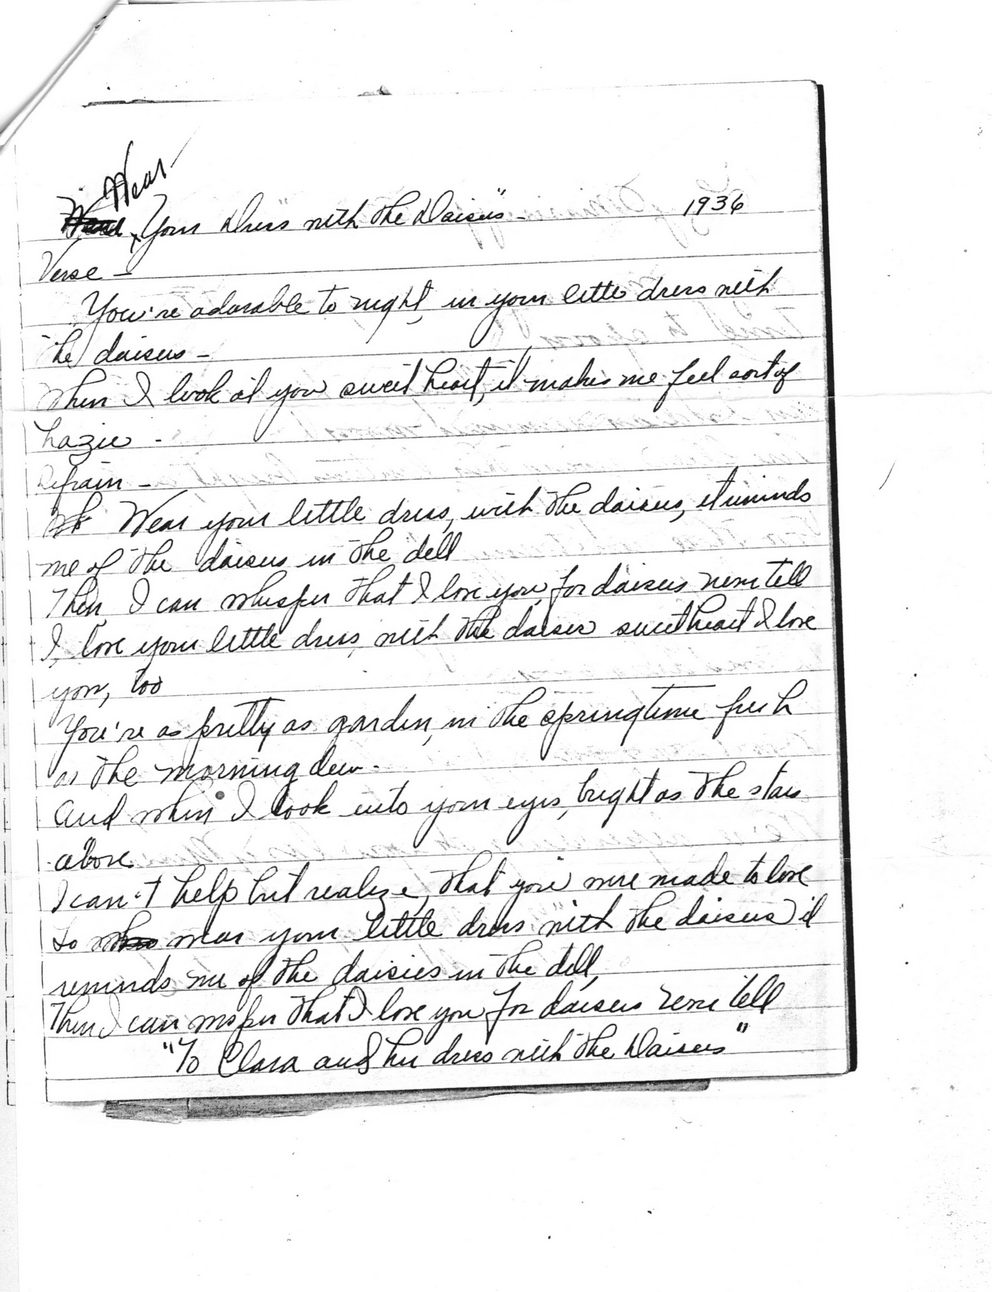 Wear
Your Dress with the Daisies" - 1936
Verse -
You're adorable to night, in your little dress with
the daisies -
When I look at you sweet heart, it makes me feel sort of
hazie -
Refrain -
Wear your little dress, with the daisies, it reminds
me of the daisies in the dell
Then I can whisper that I love you, for daisies never tell
I, love your little dress, with the daisies sweetheart I love
you, too
You're as pretty as garden, in the springtime fresh
as the morning dew -
And when I look into your eyes, bright as the stars
above
I can't help but realize, that you were made to love
So wear your little dress with the daisies it
reminds me of the daisies in the dell,
Then I can whisper that I love you for daisies never tell
"To Clara and her dress with the Daisies"